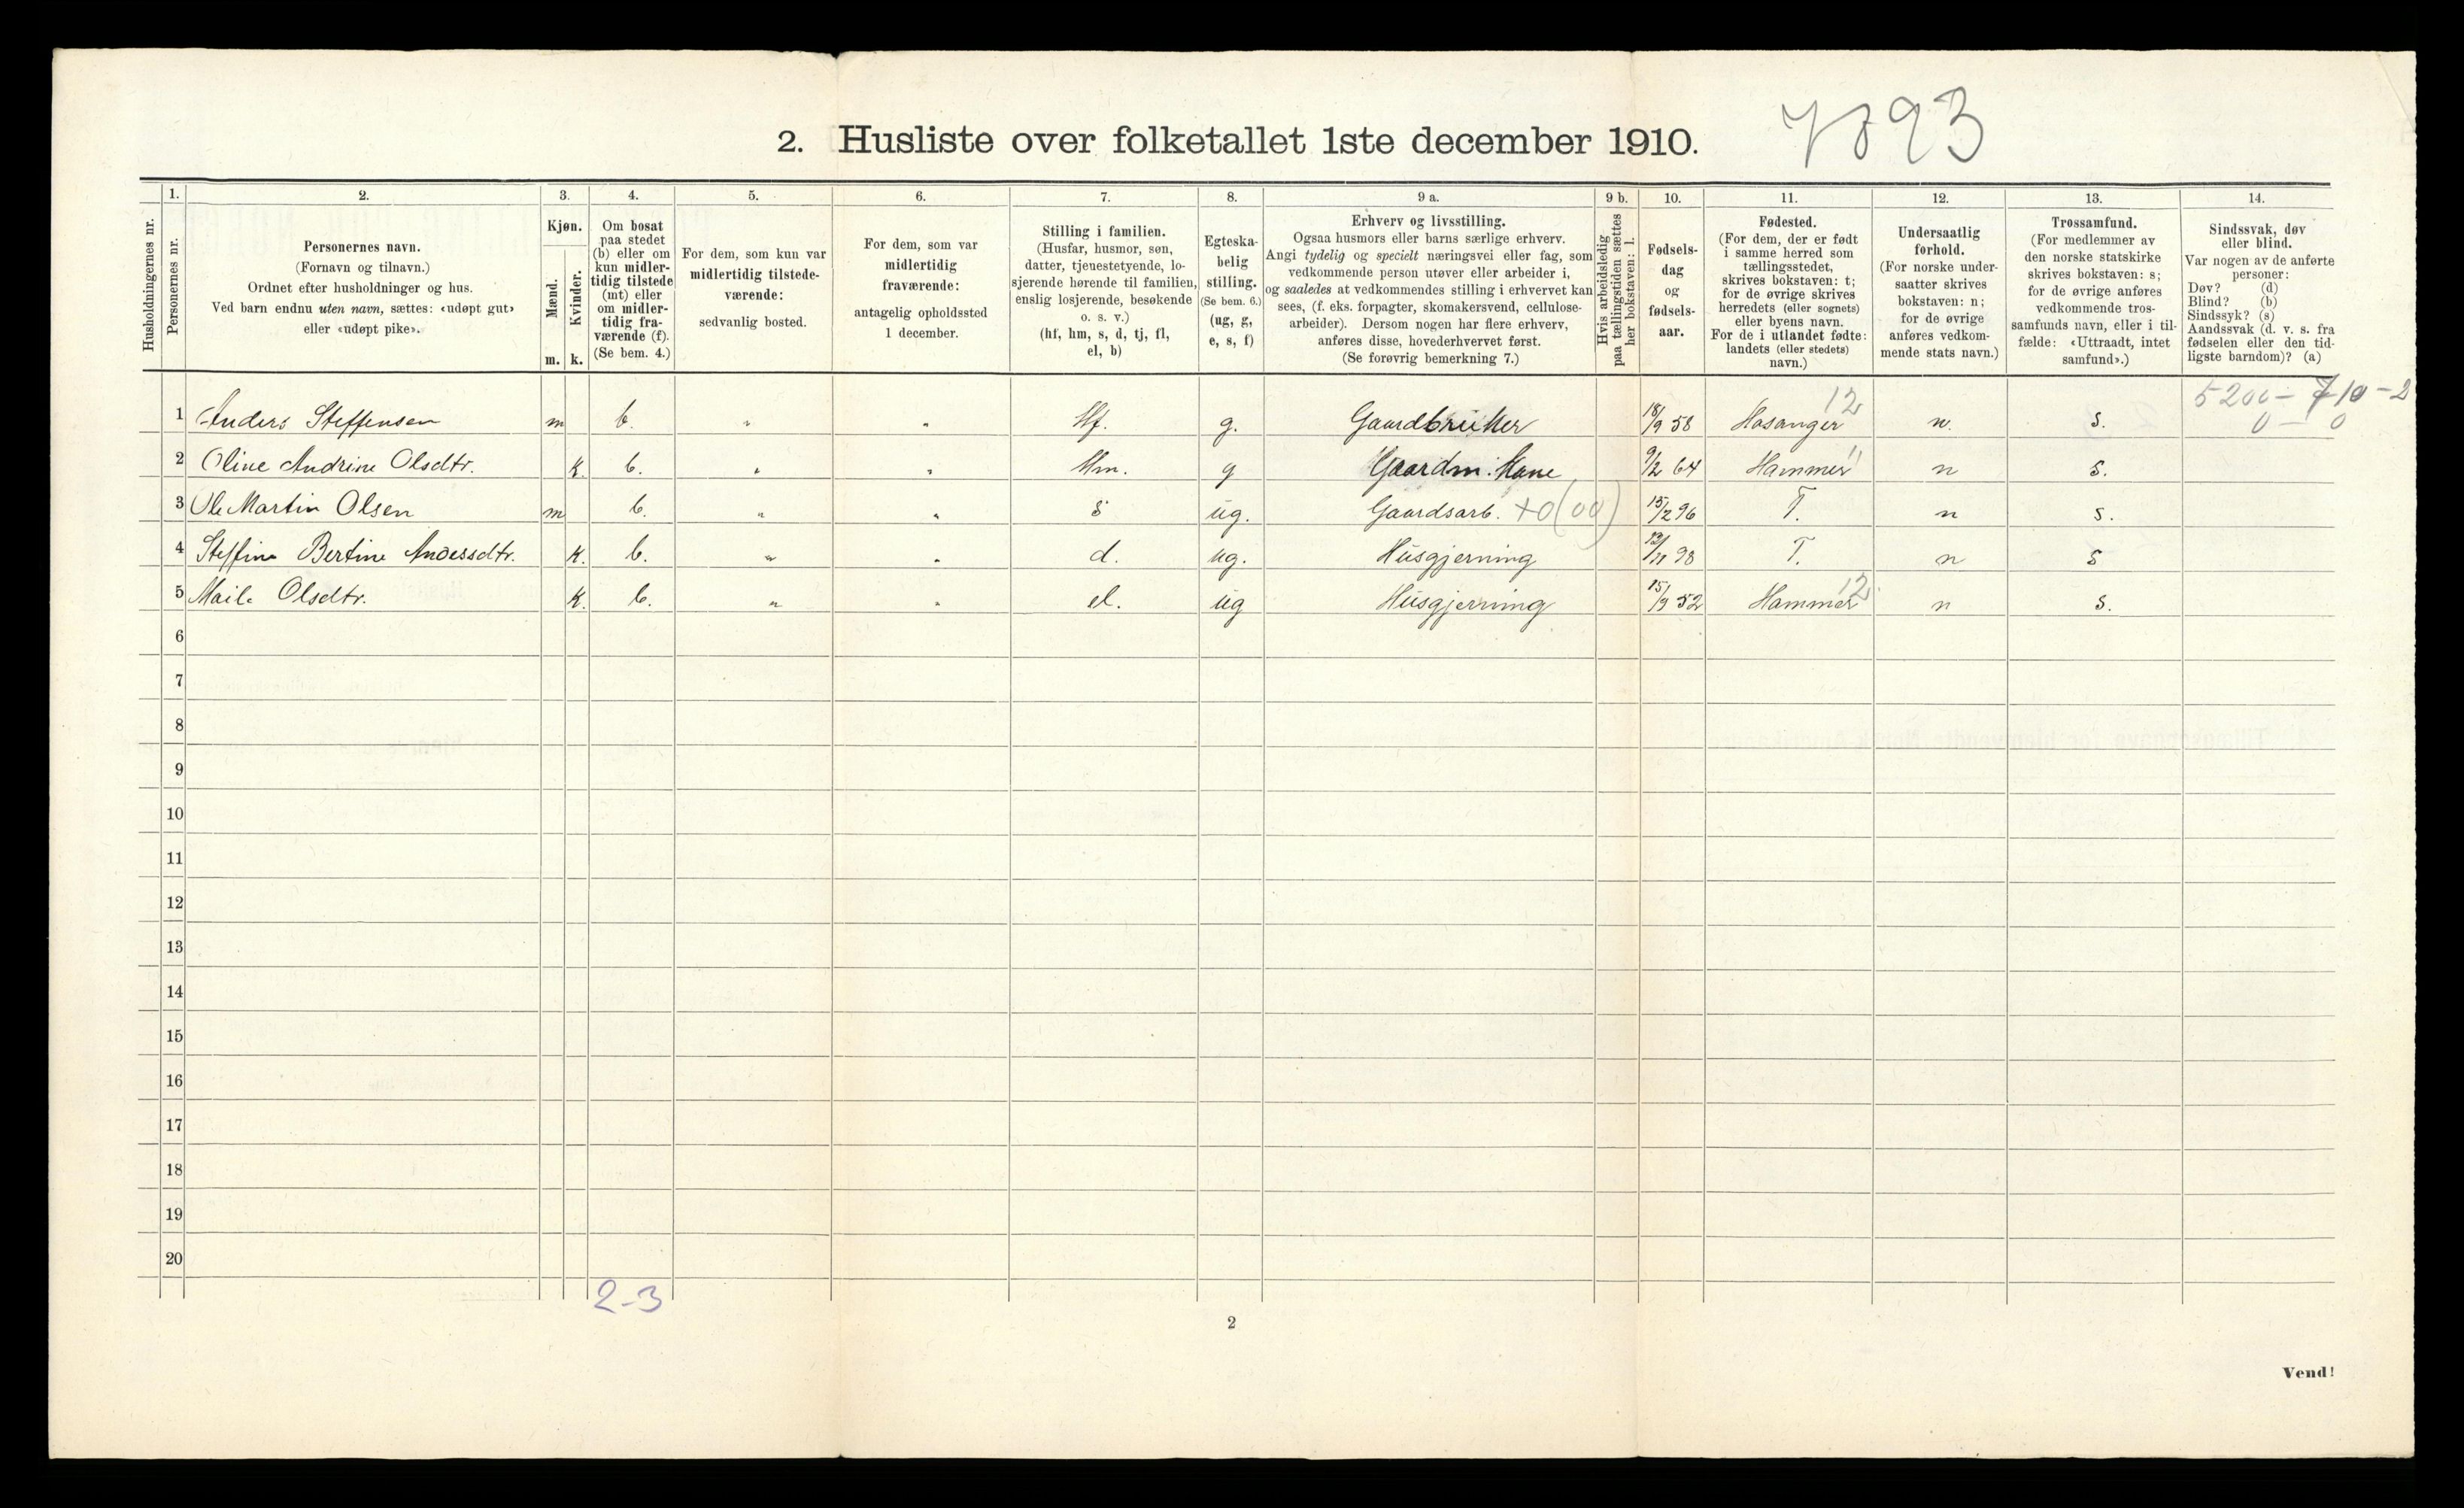 7893
2. Husliste over folketallet 1ste december 1910.
Husholdningernes nr.
1. Personernes nr.
2. Personernes navn.
(Fornavn og tilnavn.)
Ordnet efter husholdninger og hus.
Ved barn endnu uten navn, sættes: «udøpt gut»
eller «udøpt pike».
3. Kjøn.
Mænd. m.
Kvinder. k.
4. Om bosat
paa stedet
(b) eller om
kun midler-
tidig tilstede
(mt) eller
om midler-
tidig fra-
værende (f).
(Se bem. 4.)
5. For dem, som kun var
midlertidig tilstede-
værende:
sedvanlig bosted.
6. For dem, som var
midlertidig
fraværende:
antagelig opholdssted
1 december.
7. Stilling i familien.
(Husfar, husmor, søn,
datter, tjenestetyende, lo-
sjerende hørende til familien,
enslig losjerende, besøkende
o. s. v.)
(hf, hm, s, d, tj, fl,
el, b)
8. Egteska-
belig
stilling.
(Se bem. 6.)
(ug, g,
e, s, f)
9 a. Erhverv og livsstilling.
Ogsaa husmors eller barns særlige erhverv.
Angi tydelig og specielt næringsvei eller fag, som
vedkommende person utøver eller arbeider i,
og saaledes at vedkommendes stilling i erhvervet kan
sees, (f. eks. forpagter, skomakersvend, cellulose-
arbeider). Dersom nogen har flere erhverv,
anføres disse, hovederhvervet først.
(Se forøvrig bemerkning 7.)
9 b. Hvis arbeidsledig
paa tællingstiden sættes
her bokstaven: l.
10. Fødsels-
dag
og
fødsels-
aar.
11. Fødested.
(For dem, der er født
i samme herred som
tællingsstedet,
skrives bokstaven: t;
for de øvrige skrives
herredets (eller sognets)
eller byens navn.
For de i utlandet fødte:
landets (eller stedets)
navn.)
12. Undersaatlig
forhold.
(For norske under-
saatter skrives
bokstaven: n;
for de øvrige
anføres vedkom-
mende stats navn.)
13. Trossamfund.
(For medlemmer av
den norske statskirke
skrives bokstaven: s;
for de øvrige anføres
vedkommende tros-
samfunds navn, eller i til-
fælde: «Uttraadt, intet
samfund».)
14. Sindssvak, døv
eller blind.
Var nogen av de anførte
personer:
Døv? (d)
Blind? (b)
Sindssyk? (s)
Aandssvak (d. v. s. fra
fødselen eller den tid-
ligste barndom)? (a)
12 5200 –
1 Anders Steffensen m b. " " Hf. g. Gaardbruker 18/9 58 Hosanger n. s. 0 – 0
2 Oline Andrine Olsdtr. K. b. " " Hm. g Gaardm. Kone 9/2 64 Hammer 11 n s.
3 Ole Martin Olsen m b. " " s ug. Gaardsarb. +0(00) 15/2 96 T. n s.
4 Steffina Bertine Andersdtr. K. b. " " d. ug. Husgjerning 98 T. n s
5 Olsdtr. K. b. " " el. ug Husgjerning 15/9 52 Hammer 12 n s.
6
7
8
9
10
11
12
13
14
15
16
17
18
19
20
2-3
2
Vend!